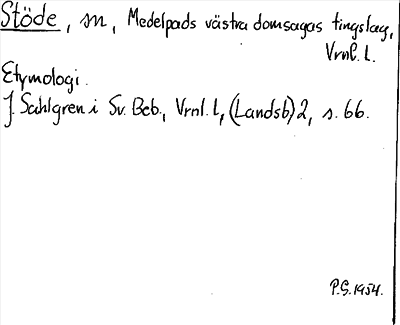 Stöde, sn, Medelpads västra domsagas tingslag,
Vrnl. l.
Etymologi.
J. Sahlgren i Sv. Beb., Vrnl. l, (Landsb) 2, s. 66.
P.G. 1954.